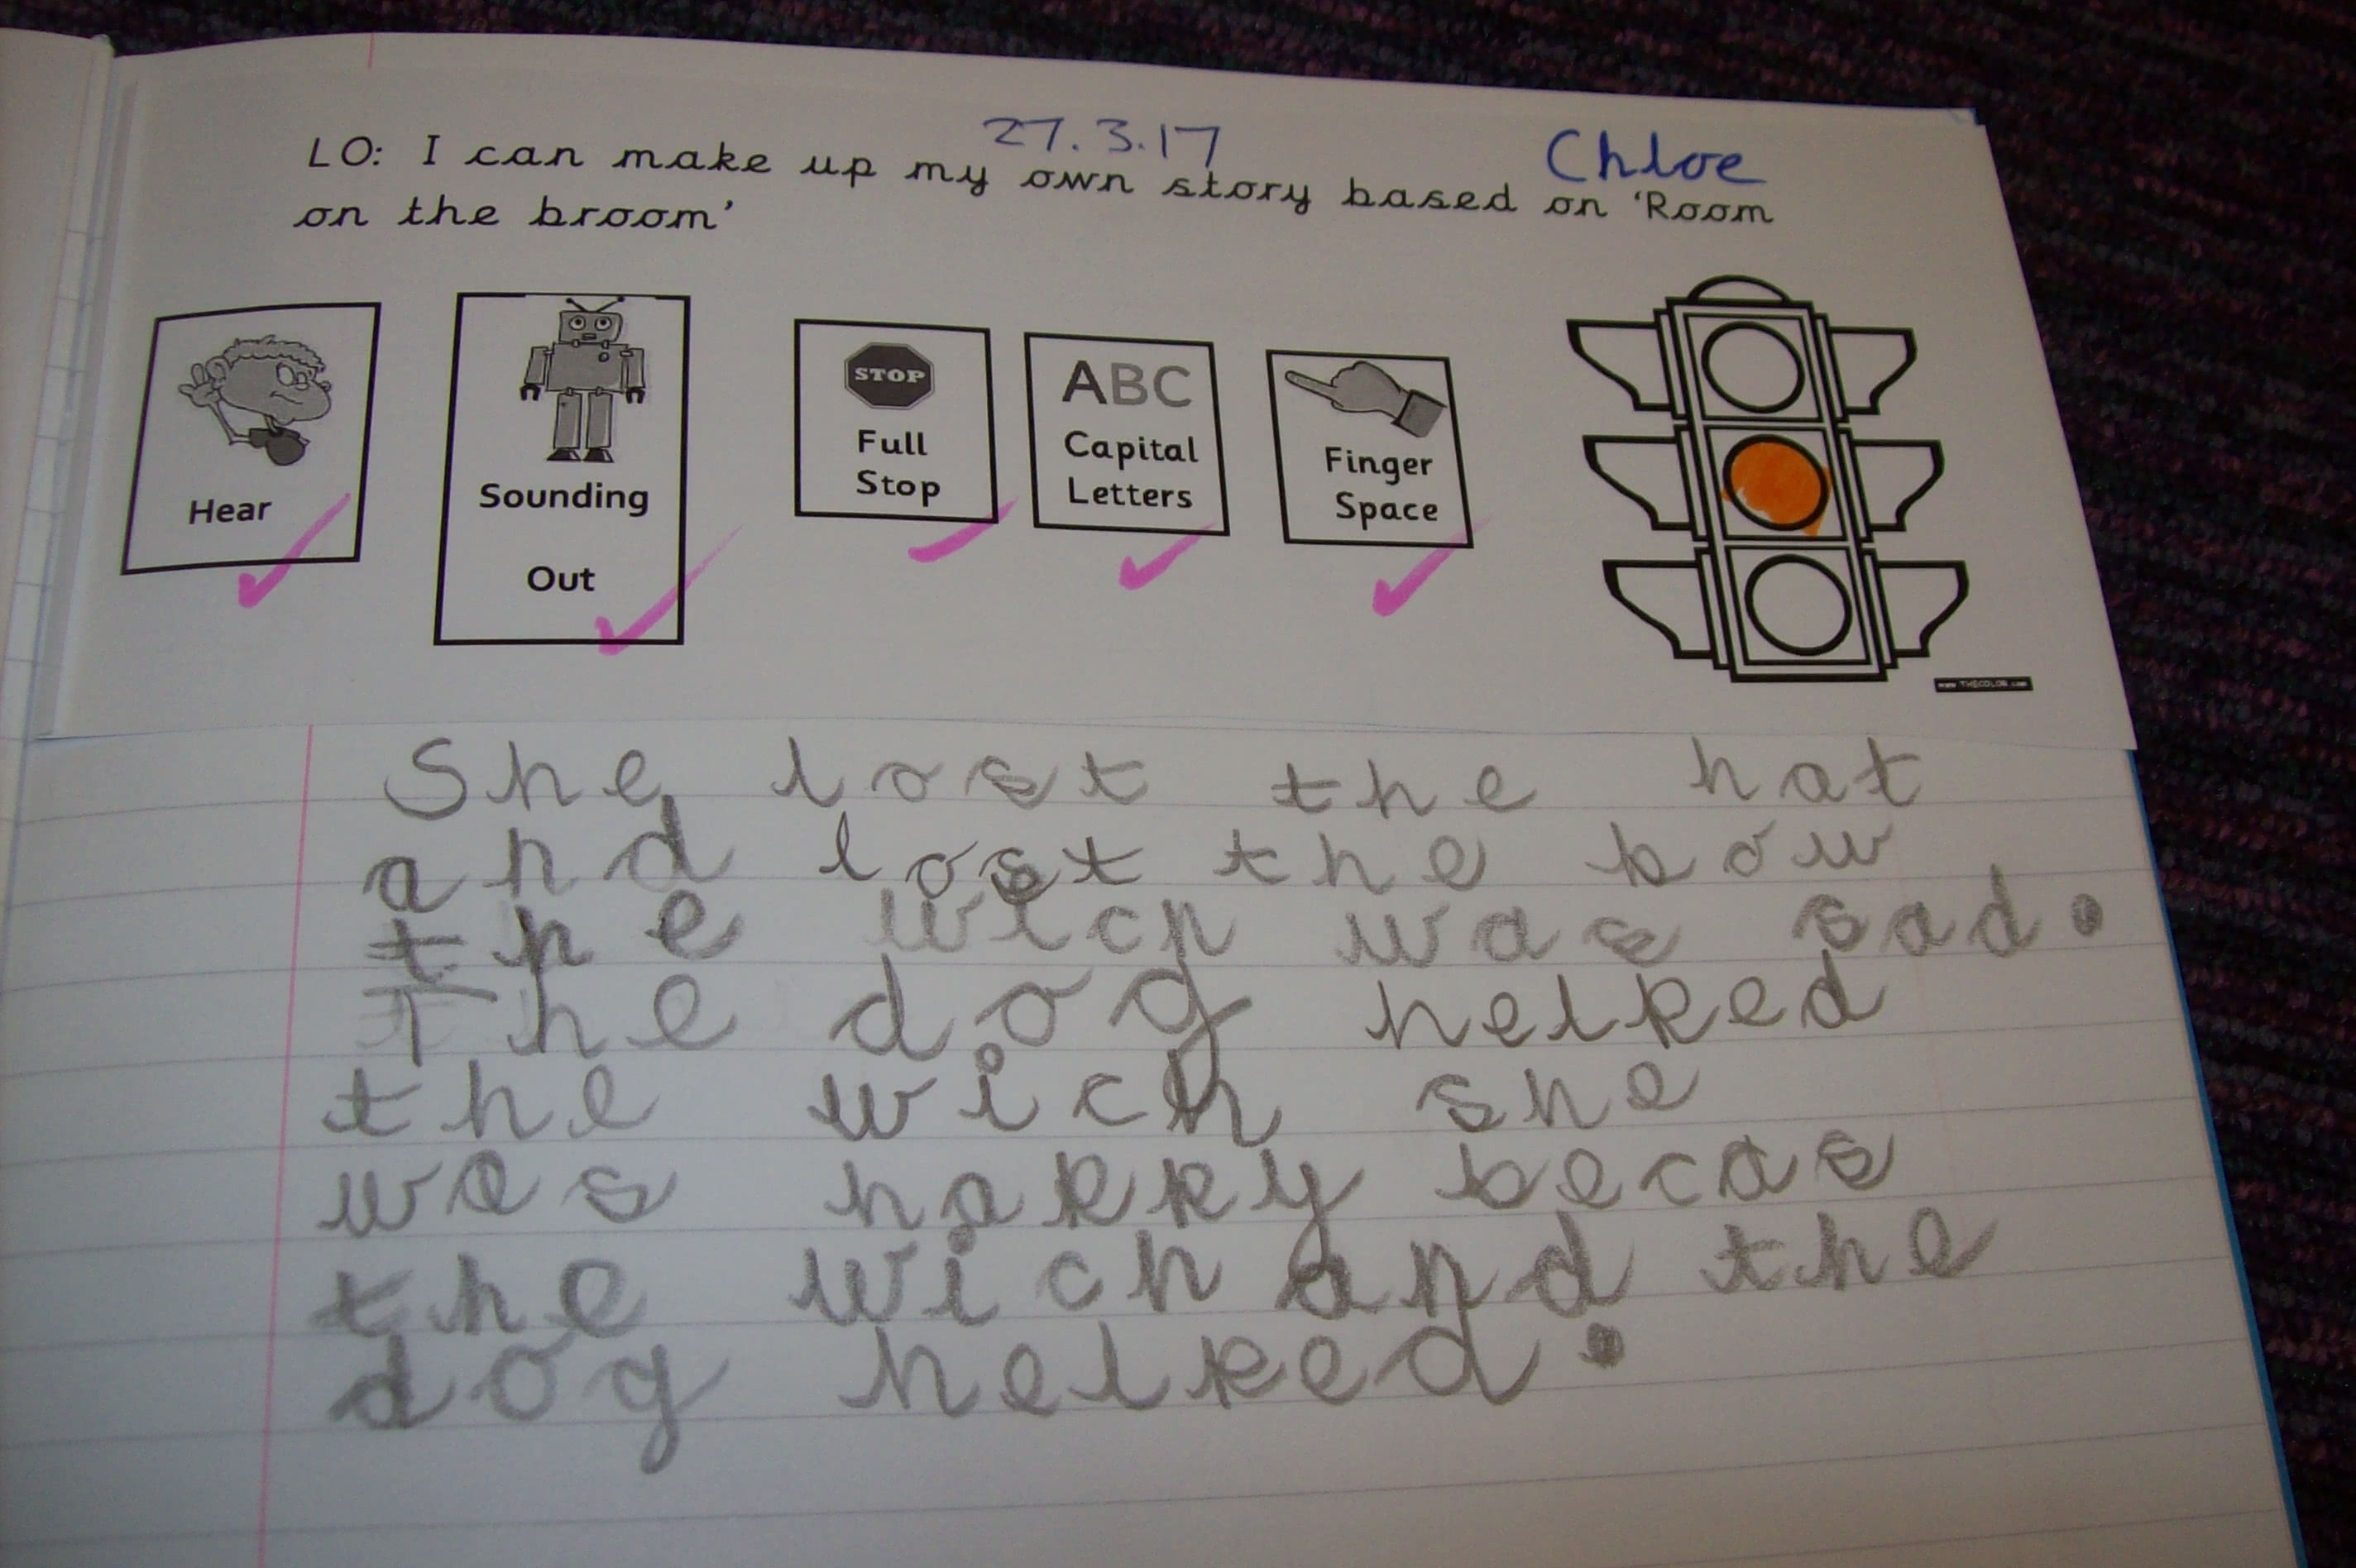 27.3.17
Chloe
LO: I can make up my own story based on 'Room
on the broom'
Hear
Sounding
Out
STOP
Full
Stop
ABC
Capital
Letters
Finger
Space
www.THECOLOR.com
She lost the hat
and lost the bow
the wich was sad.
The dog helped
the wich she
was happy becas
the wich and the
dog helped.